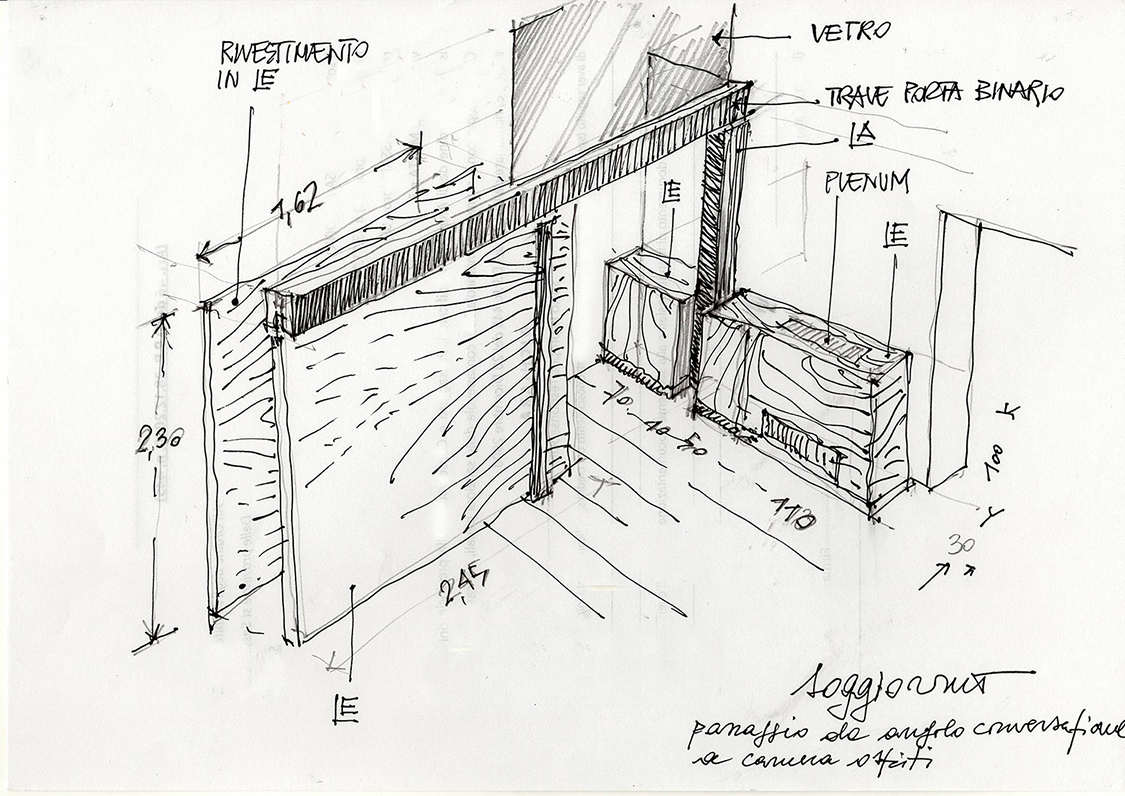 RIVESTIMENTO
IN LE
VETRO
TRAVE PORTA BINARIO
LA
PLENUM
LE
LE
1,62
2,30
70
40
50
110
100
30
2,45
LE
soggiorno
passaggio da angolo conversazione
a camera ospiti